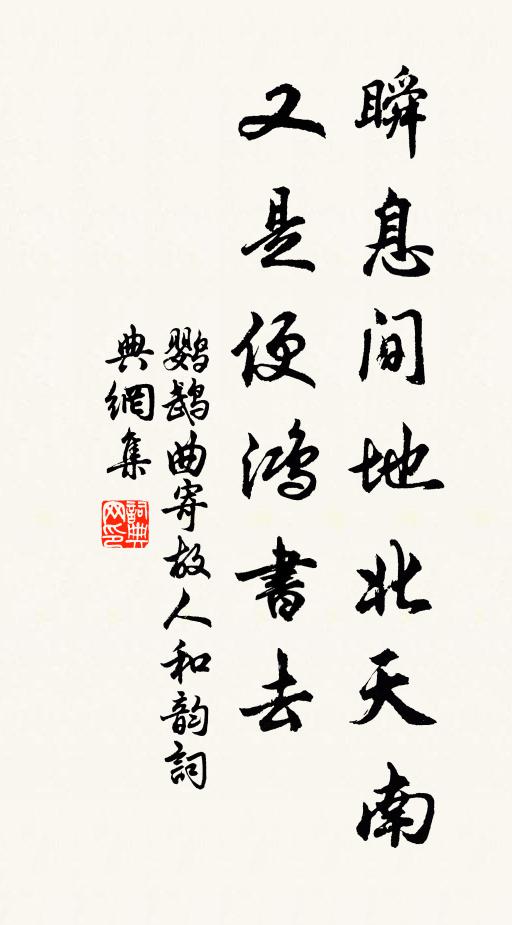 瞬息間地北天南
又是便鴻書去
鹦鹉曲寄故人和韵詞
典網集
詞典
网印